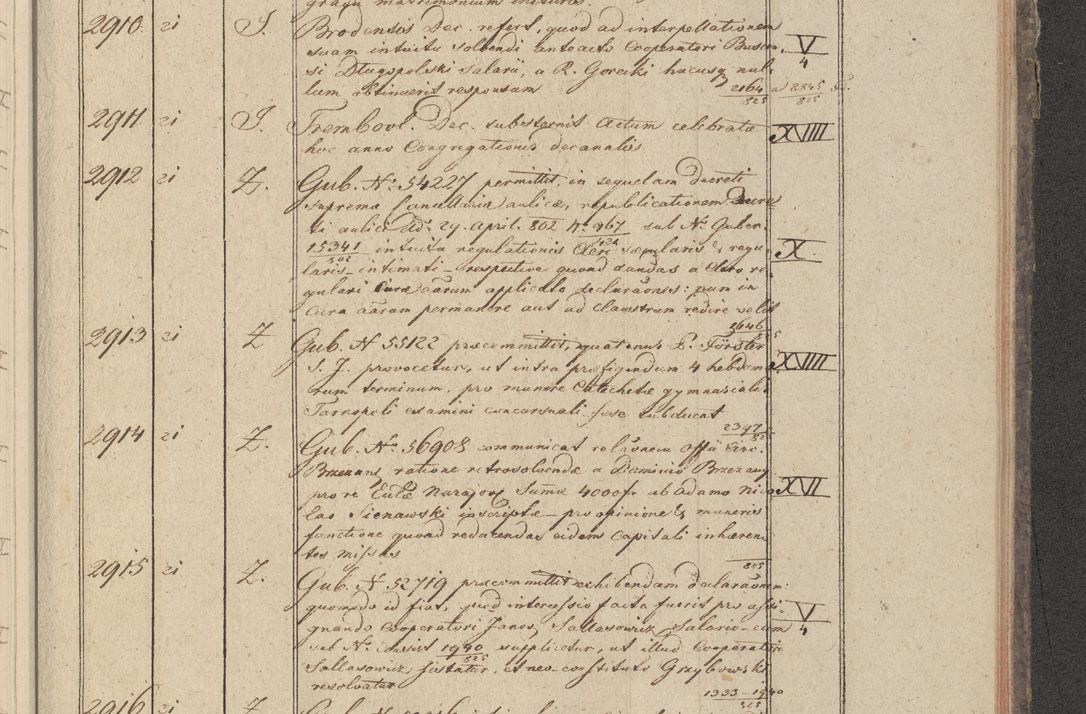 gragu matrimonium initura.
2910. ei J. Brodensis Dec. refert, quod ad interpellationem
suam intuitu solvendi anteacto Cooperatori Buscen. V/4
si Dlugopolski Salarii, a R. Gorecki hucusq nul-
lum obtinuerit responsum 2164/825 a 2845/825
2911 ei J. Trembovl. Dec. substernit Actum celebratæ XVIIII
hoc anno Congregationis decanalis
2912 ei Z. Gub. Nº 54227 permittit, in sequelam decreti
Supremæ Cancellariæ aulicæ, republicationem Decre
ti aulici dd. 29. April. 802 Nº 467 sub Nº Guber.
15341/802 intuitu regulationis Cleri sæcularis & regu X.
laris intimati - respective quoad dandas a Clero re
gulari Curæ aarum applicato declaraones: num in
Cura aarum permanere aut ad Claustrum redire velit
1646/825
2913 ei Z Gub. N 55122 præcommittit, quatenus P. Förster
S. J. provocetur, ut intra præfigendum 4 hebdoma XVIIII
rum terminum, pro munere Catechetæ gymnasialis
Tarnopoli examini concursuali sese subducat
2347/825
2914 ei Z. Gub. Nro 56908 communicat relaonem Offii Circ.
Brzezan. ratione retrosolvendæ a Dominio Brzezany
pro re Eccłæ Narajov Summæ 4000 fr ab Adamo Nico XVII
lao Sienawski inscriptæ - pro opinione & muneris
functione quoad reducendas eidem Capitali inhæren
tes Missas
825
2915 ei Z. Gub. N 52719 præcommittit exhibendam declaraonem:
quomodo id fiat, quod intercessio facta fuerit pro assi- V/4
gnando Cooperatori Janov, Sallasowicz Salario - cum
sub Nº Consist 1940/825 supplicetur, ut illud Cooperatori
Sallasowicz sistatur, et neo constituto Grzybowski
resolvatur
1333 - 1940/825
2916 ei Z